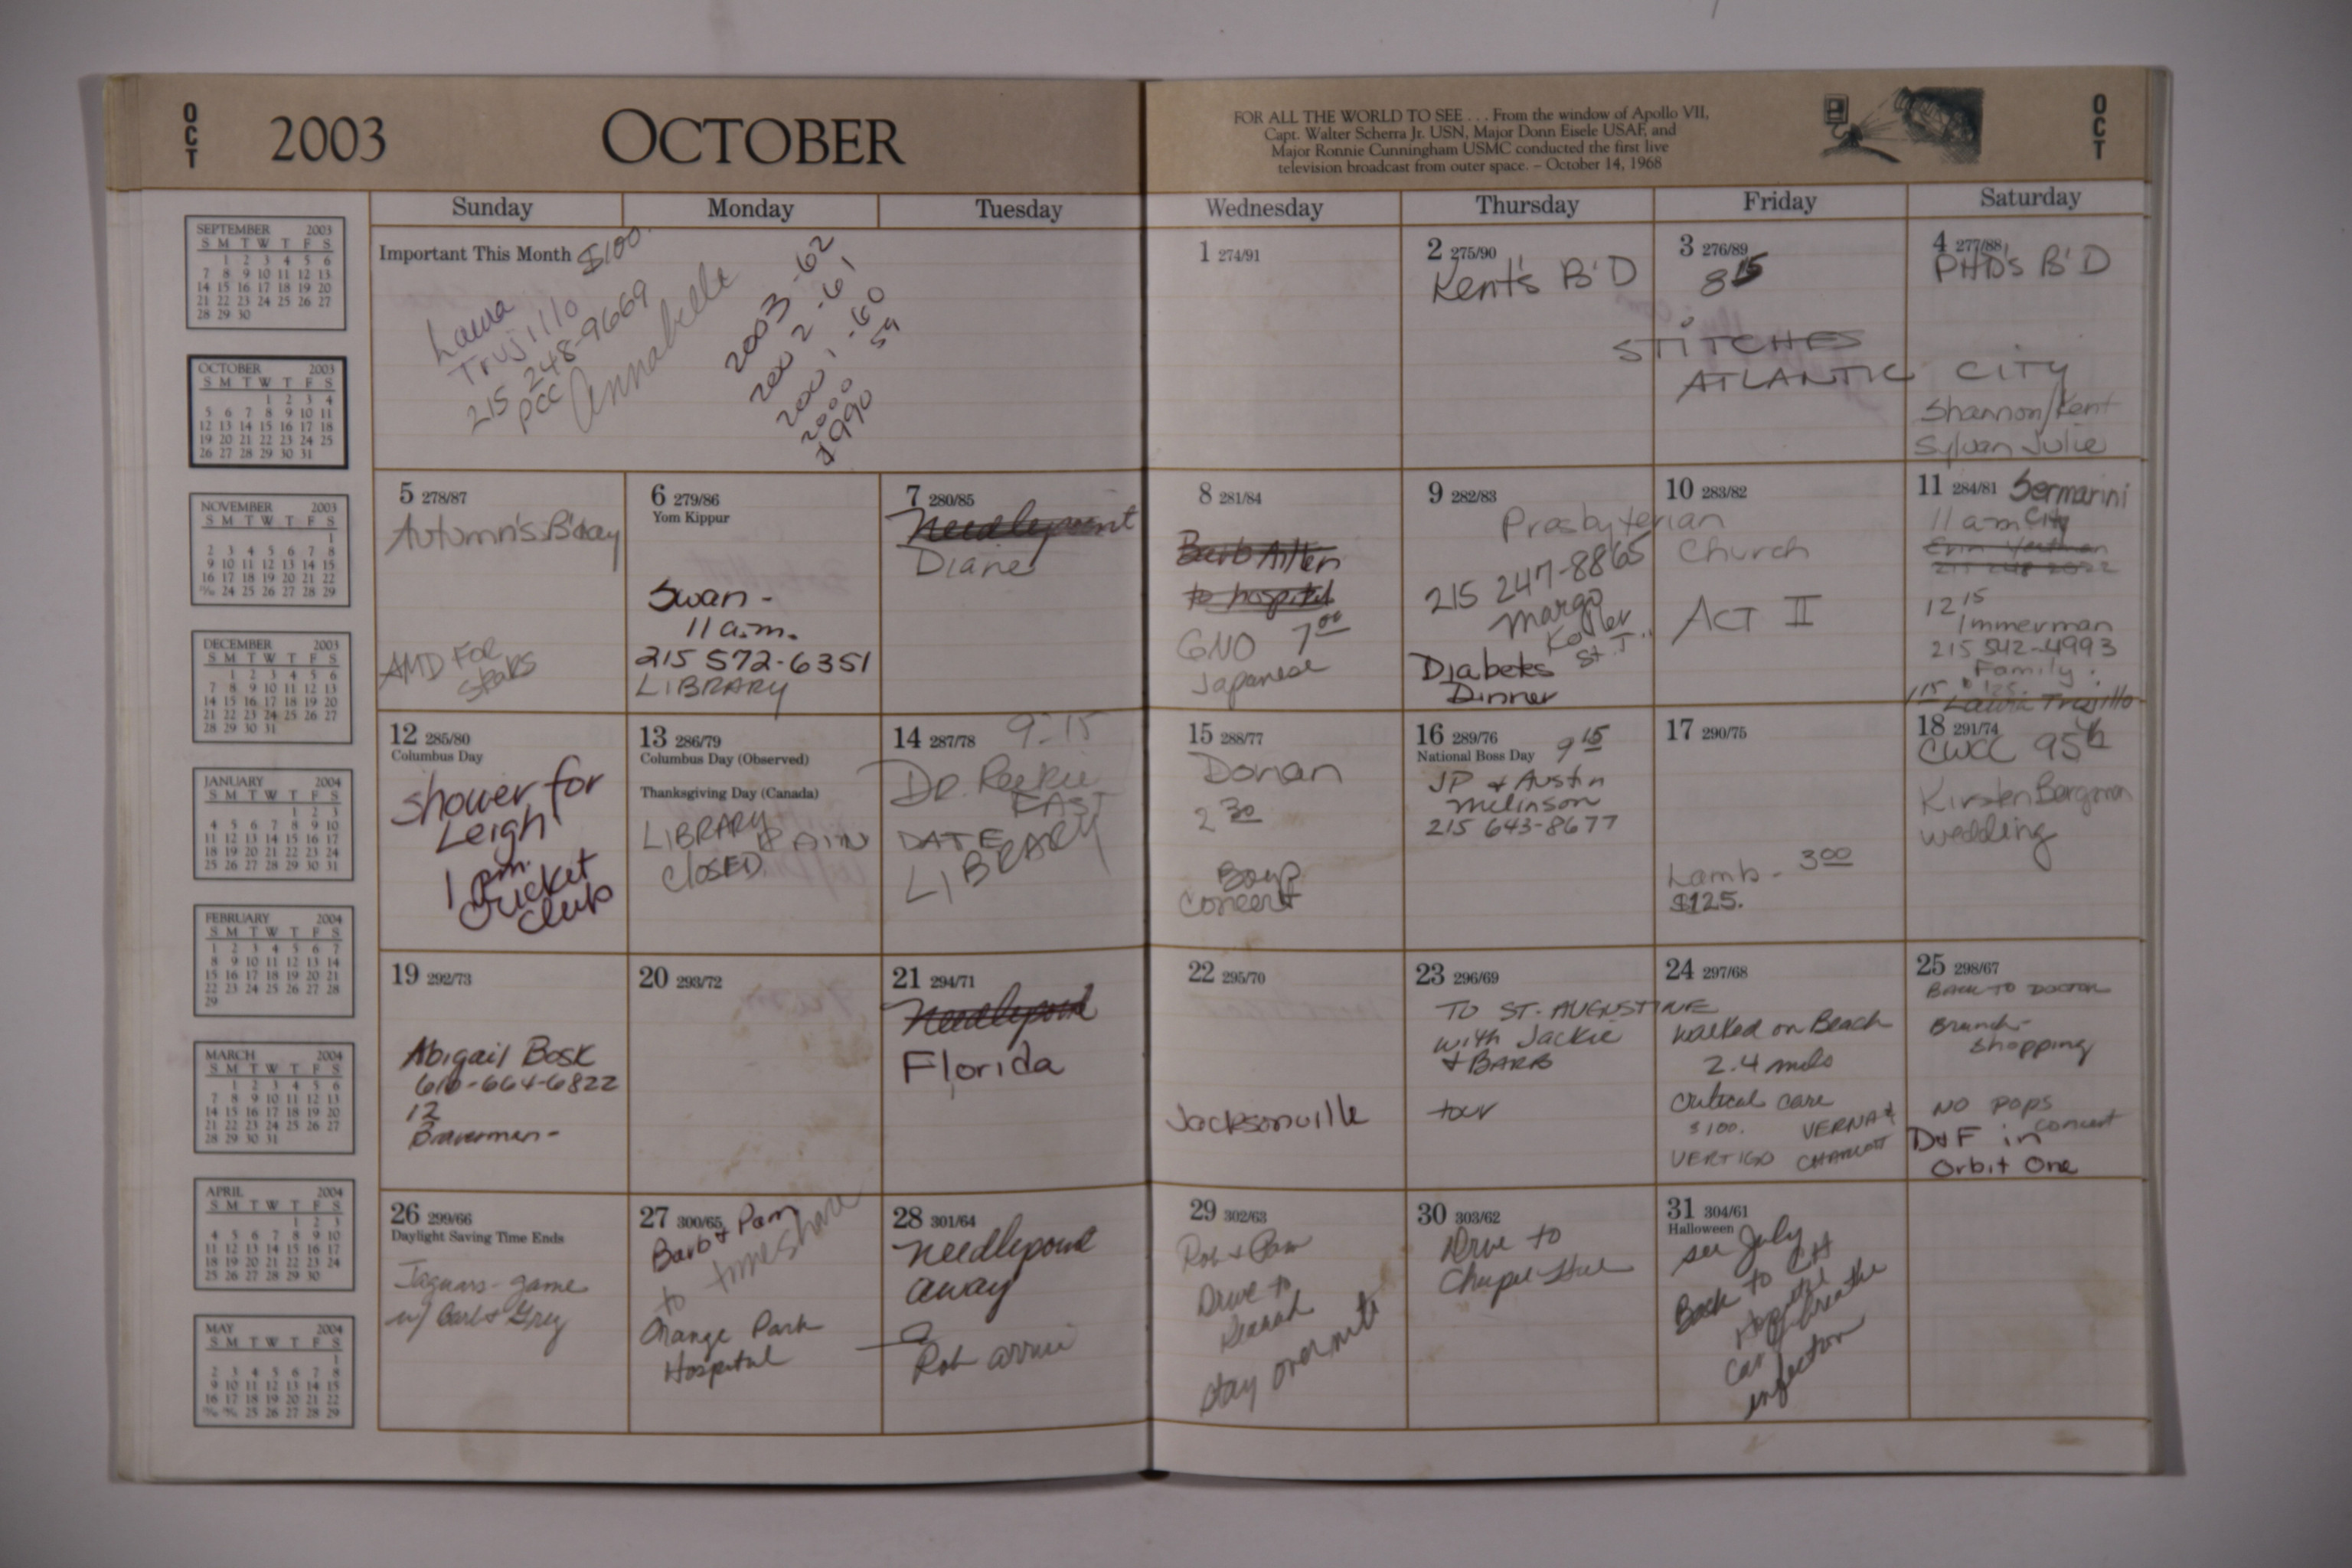 OCT
2003
OCTOBER
FOR ALL THE WORLD TO SEE . . . From the window of Apollo VII,
Capt. Walter Scherra Jr. USN, Major Donn Eisele USAF, and
Major Ronnie Cunningham USMC conducted the first live
television broadcast from outer space. – October 14, 1968
OCT
Sunday Monday Tuesday Wednesday Thursday Friday Saturday
Important This Month $100.
Laura
Trujillo
215 248-9669
PCC
Annabelle
2003 -62
2002 -61
2001 -60
2000 59
1990
1 274/91
2 275/90
Kent's B'D
3 276/89
8 15
STITCHES
ATLANTIC CITY
4 277/88
PHD'S B'D
Shannon/Kent
Sylvan Julie
5 278/87
Autumn's B'day
AMD FOR
6 279/86
Yom Kippur
Swan -
11 a.m.
215 572-6351
LIBRARY
7 280/85
Needlepoint
Diane
8 281/84
to hospital
GNO 7 00
Japanese
9 282/83
Presbyterian
Church
215 247-8865
Margo
St.
Diabetes
Dinner
10 283/82
ACT II
11 284/81 Sermarini
11 a-m City
12 15
Immerman
215 542-4993
Family
1 15 Laura Trujillo
12 285/80
Columbus Day
Shower for
Leigh
1 pm.
Cricket
Club
13 286/79
Columbus Day (Observed)
Thanksgiving Day (Canada)
LIBRARY
CLOSED
14 287/78 9-15
DATE
LIBRARY
15 288/77
Donan
2 30
Concert
16 289/76
National Boss Day 9 15
JP & Austin
Milinson
215 643-8677
17 290/75
Lamb - 3 00
$125.
18 291/74
CWCC 95th
Kirsten Bergman
wedding
19 292/73
Abigail Bosk
610-664-6822
12
Braverman -
20 293/72
21 294/71
Needlepoint
Florida
22 295/70
Jacksonville
23 296/69
TO ST. AUGUSTINE
with Jackie
& BARB
tour
24 297/68
walked on Beach
2.4 miles
critical care
$100. VERNA &
VERTIGO
25 298/67
BACK TO DOCTOR
Brunch -
shopping
NO POPS
concert
D & F in
Orbit One
26 299/66
Daylight Saving Time Ends
Jaguars - game
w/ Barb & Greg
27 300/65
Barb & Pam
to timeshare
Orange Park
Hospital
28 301/64
Needlepoint
away
Rob arrive
29 302/63
Rob & Pam
Drive to
stay over nite
30 303/62
Drive to
Chapel Hill
31 304/61
Halloween
see July
Back to CH
Hospital
can't breathe
infection
SEPTEMBER 2003
S M T W T F S
1 2 3 4 5 6
7 8 9 10 11 12 13
14 15 16 17 18 19 20
21 22 23 24 25 26 27
28 29 30
OCTOBER 2003
S M T W T F S
1 2 3 4
5 6 7 8 9 10 11
12 13 14 15 16 17 18
19 20 21 22 23 24 25
26 27 28 29 30 31
NOVEMBER 2003
S M T W T F S
1
2 3 4 5 6 7 8
9 10 11 12 13 14 15
16 17 18 19 20 21 22
23/30 24 25 26 27 28 29
DECEMBER 2003
S M T W T F S
1 2 3 4 5 6
7 8 9 10 11 12 13
14 15 16 17 18 19 20
21 22 23 24 25 26 27
28 29 30 31
JANUARY 2004
S M T W T F S
1 2 3
4 5 6 7 8 9 10
11 12 13 14 15 16 17
18 19 20 21 22 23 24
25 26 27 28 29 30 31
FEBRUARY 2004
S M T W T F S
1 2 3 4 5 6 7
8 9 10 11 12 13 14
15 16 17 18 19 20 21
22 23 24 25 26 27 28
29
MARCH 2004
S M T W T F S
1 2 3 4 5 6
7 8 9 10 11 12 13
14 15 16 17 18 19 20
21 22 23 24 25 26 27
28 29 30 31
APRIL 2004
S M T W T F S
1 2 3
4 5 6 7 8 9 10
11 12 13 14 15 16 17
18 19 20 21 22 23 24
25 26 27 28 29 30
MAY 2004
S M T W T F S
1
2 3 4 5 6 7 8
9 10 11 12 13 14 15
16 17 18 19 20 21 22
23/30 24/31 25 26 27 28 29